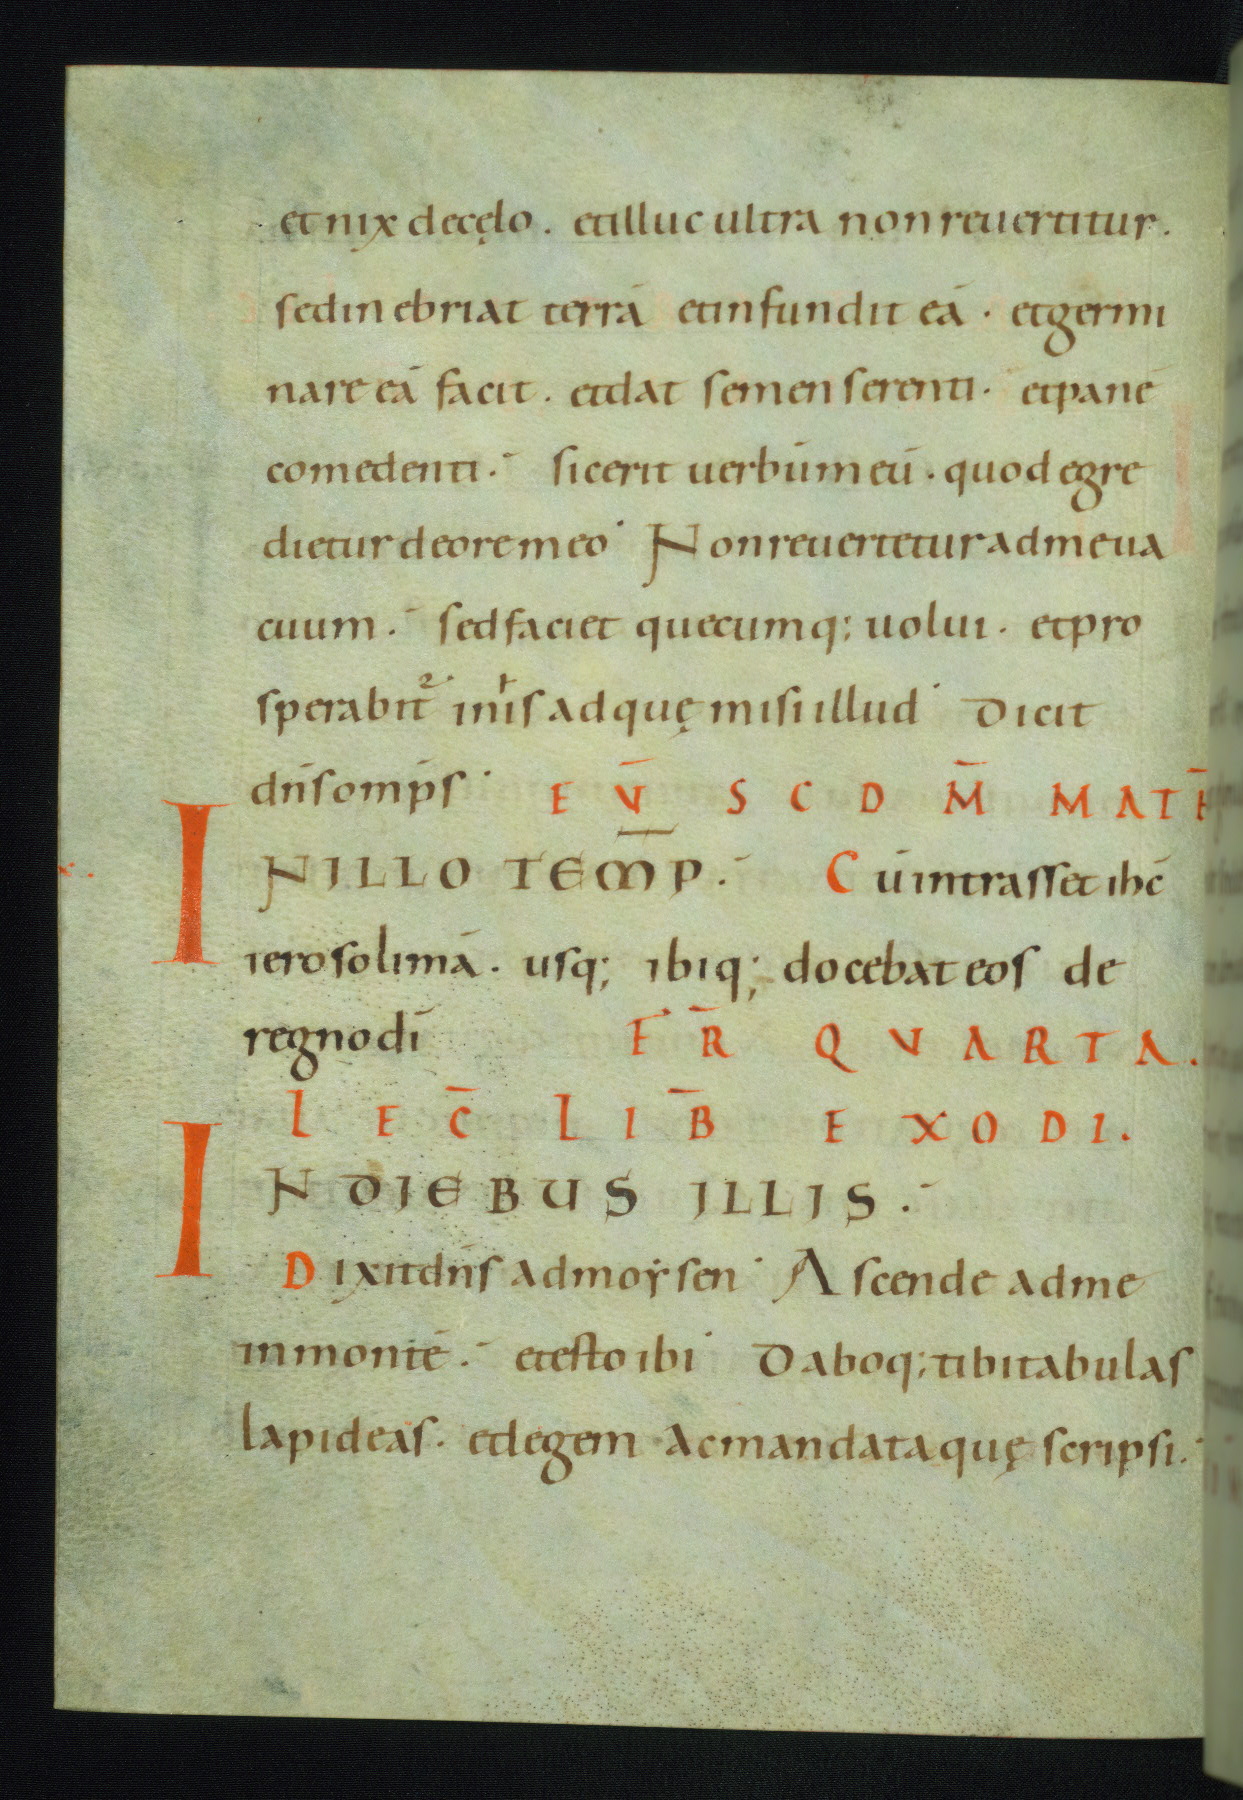 et nix de cęlo. et illuc ultra non reuertitur.
sed inebriat terrā et infundit eā. et germi
nare eā facit. et dat semen serenti. et panē
comedenti. sic erit uerbū meū. quod egre
dietur de ore meo Non reuertetur ad me ua
cuum. sed faciet quecumq; uolui. et pro
sperabit̄ in ıs ad quę misi illud Dicit
dn̄s omp̄s EV̄ SCD M̄ MATH̄
IN ILLO TEMP̄. Cū intrasset ihc̄
ierosolimā. usq; ibiq; docebat eos de
regno dī FR̄ QVARTA.
LEC̄ LIB̄ EXODI.
IN DIEBUS ILLIS.
Dixit dn̄s ad moẏsen Ascende ad me
in montē. et esto ibi Daboq; tibi tabulas
lapideas. et legem ac mandata quę scripsi.